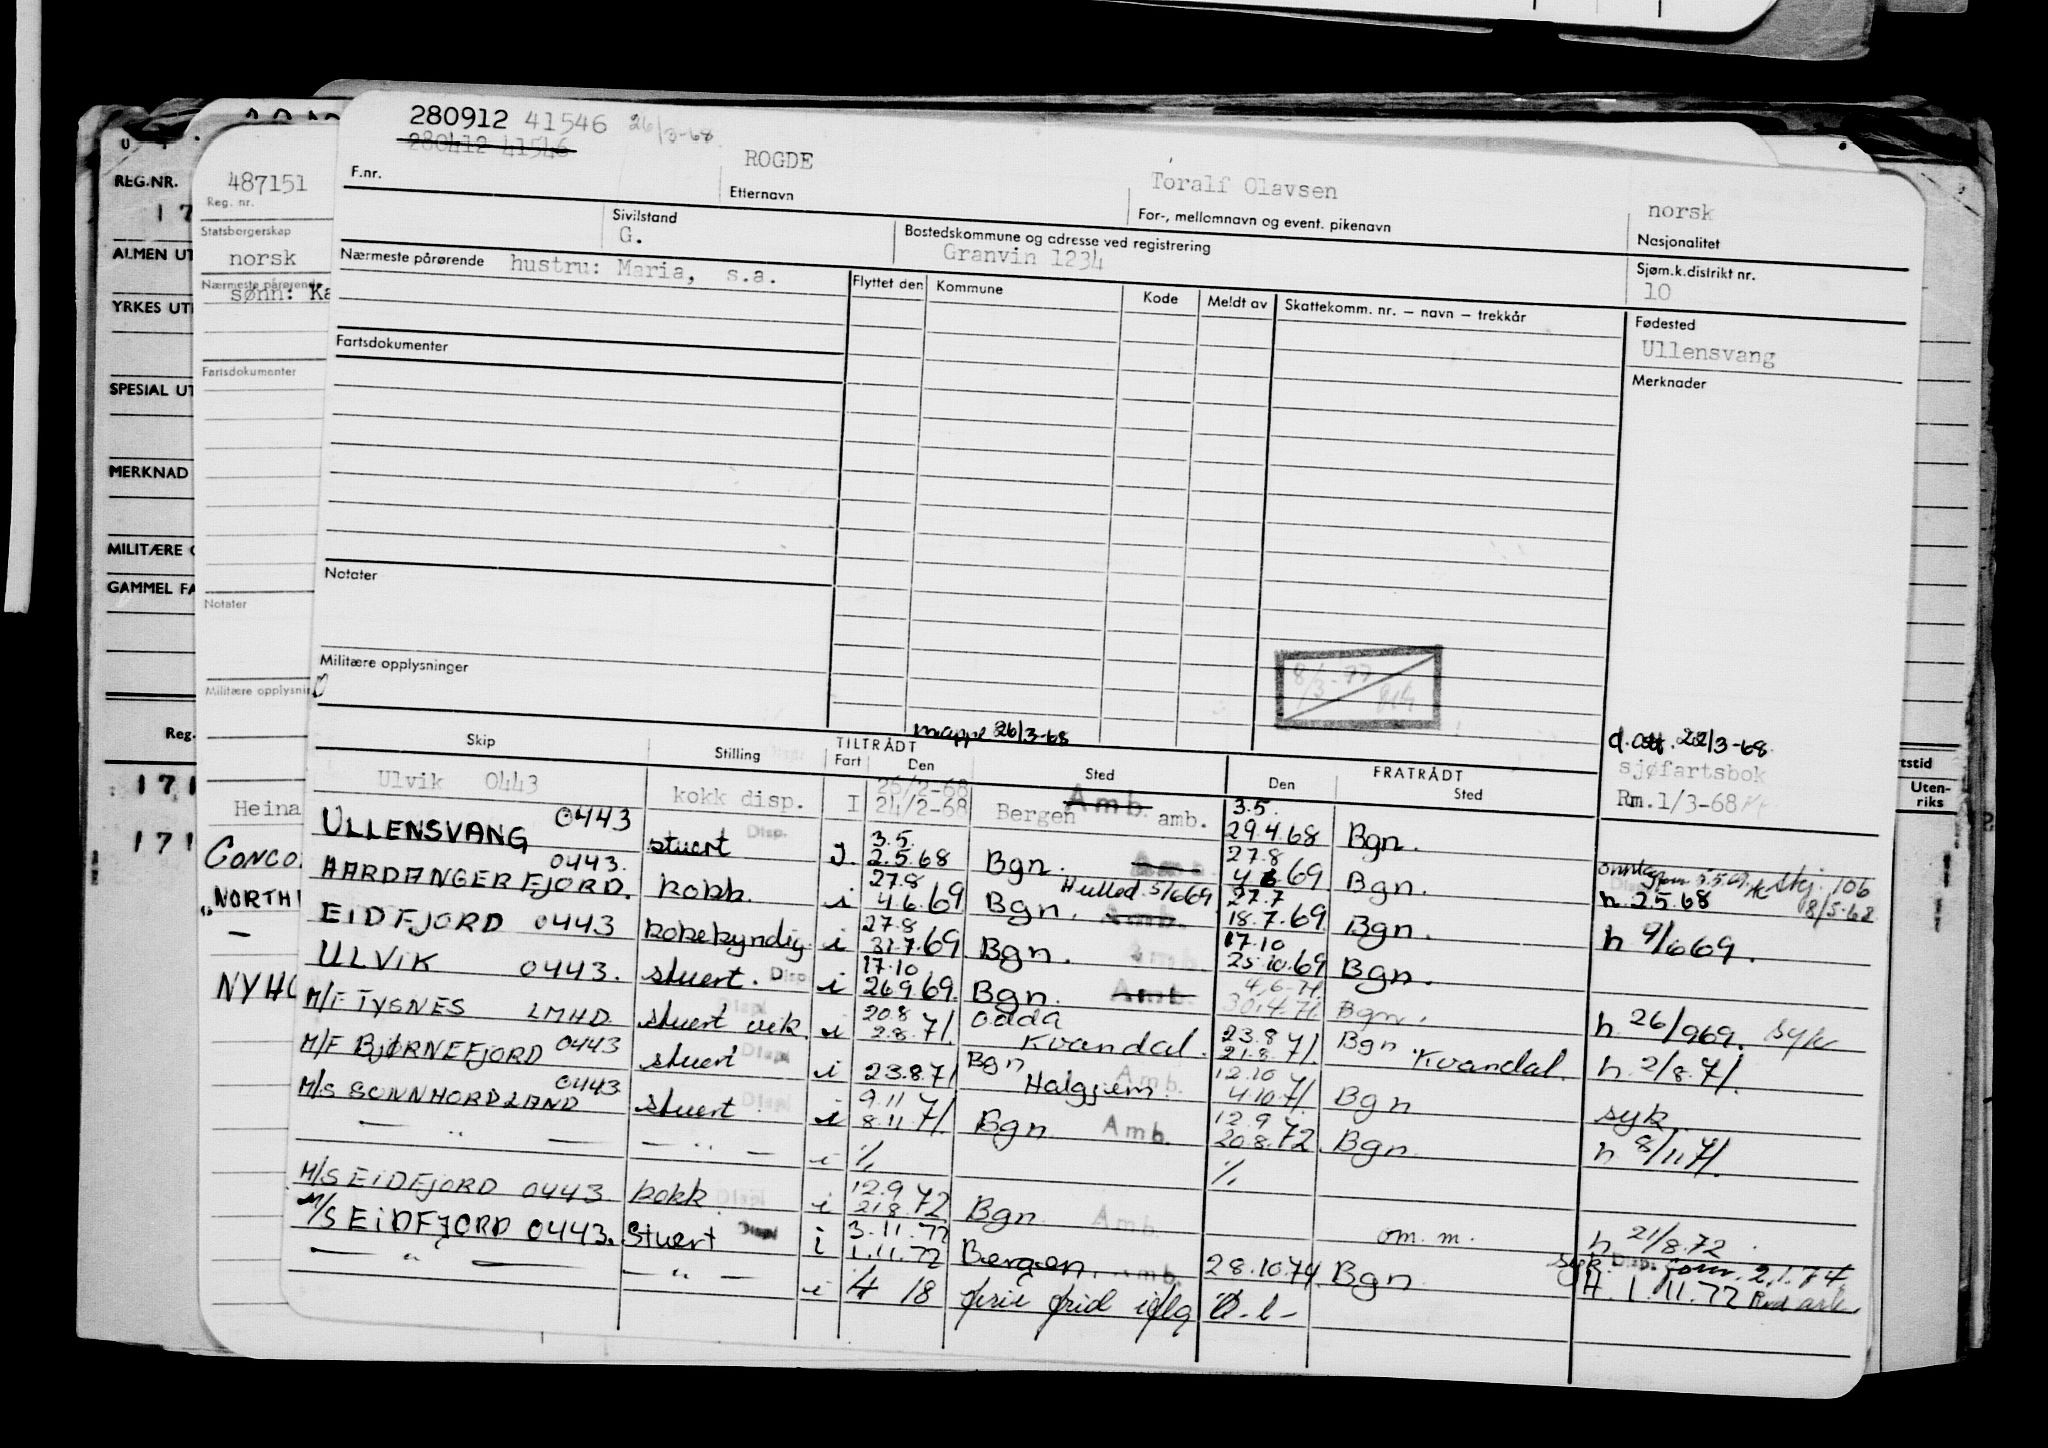 280912 41546 26/3-68
280412 41546
ROGDE
Toralf Olavsen
norsk
F.nr.
Etternavn
For-, mellomnavn og event. pikenavn
Nasjonalitet
Sivilstand
G.
Bostedskommune og adresse ved registrering
Granvin 1234
Sjøm.k.distrikt nr.
10
Nærmeste pårørende hustru: Maria, s.a.
Flyttet den Kommune Kode Meldt av Skattekomm. nr. – navn – trekkår
Fødested
Ullensvang
Fartsdokumenter
Merknader
Notater
Militære opplysninger
8/3-77
mappe 26/3-68
d.att. 22/3-68
sjøfartsbok
Rm.1/3-68
Skip Stilling TILTRÅDT Fart Den Sted FRATRÅDT Den Sted
Ulvik 0443 kokk disp. I 26/2-68 24/2-68 Bergen Amb. amb. 3.5. 29.4.68 Bgn.
ULLENSVANG 0443 stuert Disp. I. 3.5. 2.5.68 Bgn. Amb. 27.8 4.6.69 Bgn. Skj. 106 8/5-68
h. 2.5.68
HARDANGERFJORD. 0443. kokk. i 27.8 4.6.69 Bgn. Hulled 5/6 69 Amb. 27.7 18.7.69 Bgn. h 4/6 69.
EIDFJORD 0443 kokekyndig i 27.8 31.7.69 Bgn. Amb. 17.10 25.10.69 Bgn.
ULVIK 0443. stuert. Disp i 17.10 26.9.69. Bgn. Amb. 4.6-71. 30.4.71 Bgn. h 26/9 69. syk
M/F TYSNES LMHD stuert vik. i 20.8 2.8.71. Odda Kvandal. 23.8 21.8.71. Bgn Kvandal. h. 2/8.71.
M/F BJØRNEFJORD 0443 stuert Disp i 23.8.71 Bgn Halgjem. Amb. 12.10 4.10.71. Bgn syk.
M/S SUNNHORDLAND 0443 stuert Disp i 9.11 8.11.71. Bgn Amb. 12.9 20.8.72. Bgn h 8/11 71.
— " — — " — i % %
M/S EIDFJORD 0443 kokk Disp i 12.9 21.8.72 Bgn Amb. om. m. h 21/8.72.
M/S EIDFJORD 0443. Stuert Disp i 3.11.72 1.11.72 Bergen. Amb. 28.10.74 Bgn syk. Disp. 2.1.74
H. 1.11.72
— " — — " — i 4 18
REG.NR.
17
ALMEN UT
YRKES UT
SPESIAL UT
MERKNAD
MILITÆRE
GAMMEL FA
Reg.
171
171
487151
Reg. nr.
Statsborgerskap
norsk
Nærmeste pårørende
sønn: Ka
Fartsdokumenter
Notater
Militære opplysnin
Heina
CONCO
NORTH
—
NYHO
rtstid
Uten-
riks